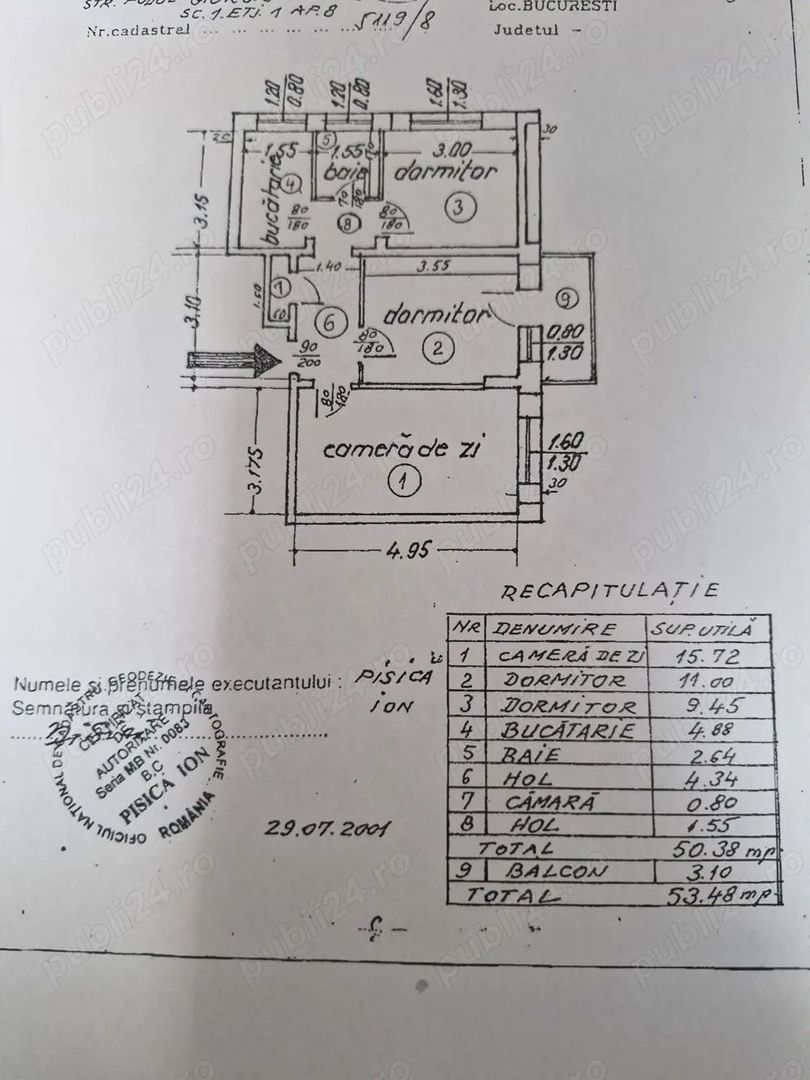 SC. 1. ETJ. 1 AP. 8
Nr.cadastral ... ... ... ... ... 5119/8
Loc.BUCURESTI
Judetul -
1.20 0.80 1.20 0.80 1.60 1.30
30
1.55 5 1.55 3.00
bucătarie 4 baie dormitor 3
80/180 70/180 8 80/180
3.15
1.40 3.55
7 1.50
3.10 6 dormitor 2 9
80/180 0.80/1.30
90/200
80/180
cameră de zi 1
3.175
1.60/1.30
30
4.95
RECAPITULAȚIE
NR DENUMIRE SUP. UTILĂ
1 CAMERĂ DE ZI 15.72
2 DORMITOR 11.00
3 DORMITOR 9.45
4 BUCĂTARIE 4.88
5 BAIE 2.64
6 HOL 4.34
7 CĂMARĂ 0.80
8 HOL 1.55
TOTAL 50.38 mp
9 BALCON 3.10
TOTAL 53.48 mp
Numele si prenumele executantului : PISICA
Semnătura si stampila ION
CERTIFICAT
DE
AUTORIZARE
Seria MB Nr. 0083
B.C
PISICA ION
ROMÂNIA
OFICIUL NATIONAL DE
29.07.2001
publi24.ro